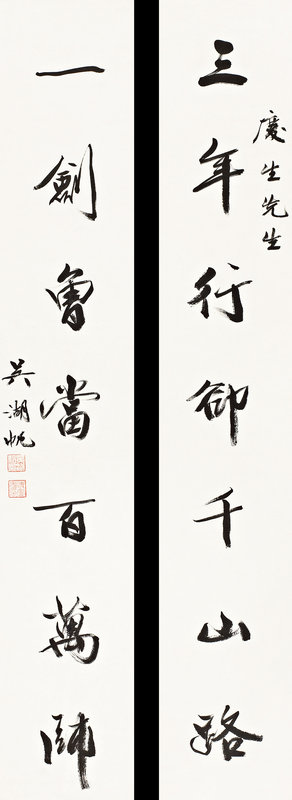 三年行卻千山路
慶生先生
一劍曾當百萬師
吳湖帆